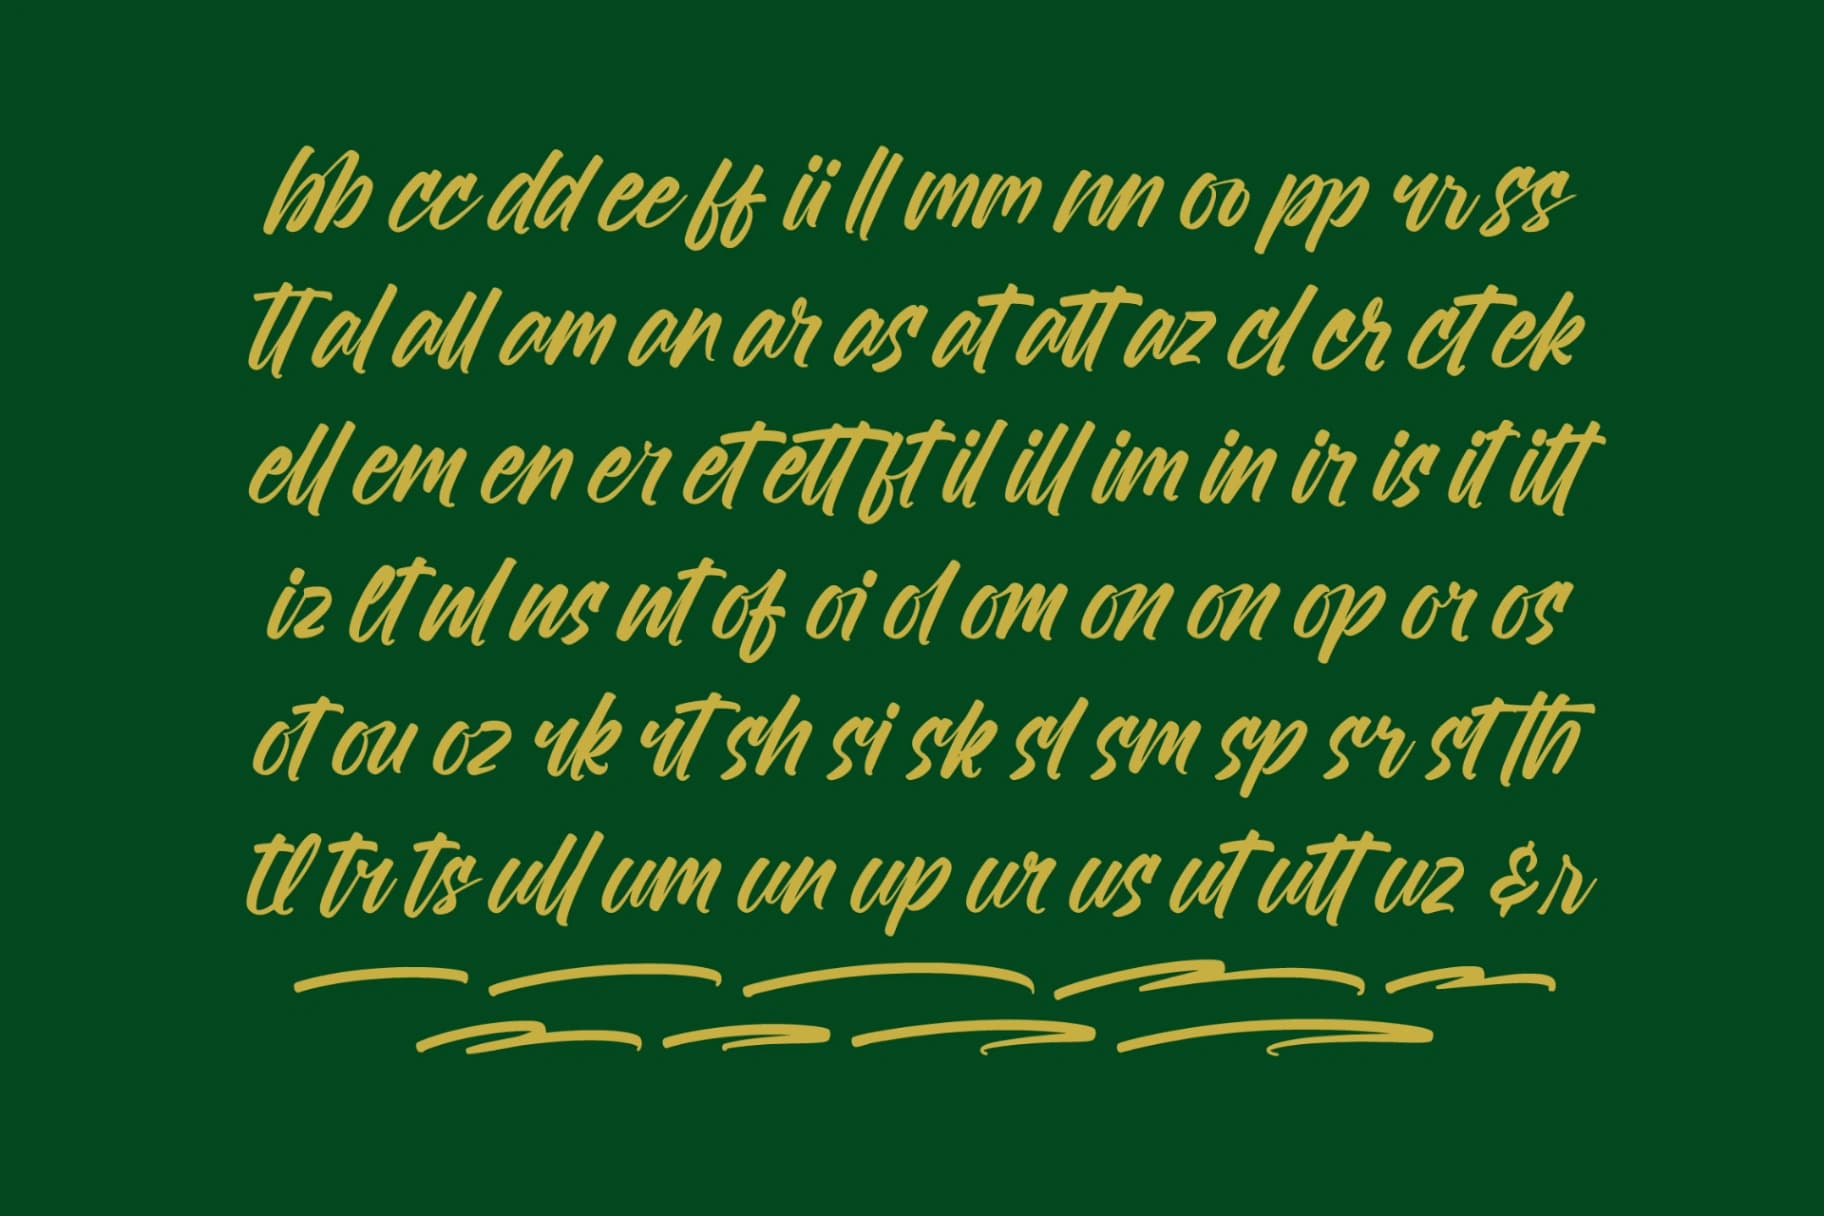 bb cc dd ee ff ii ll mm nn oo pp rr ss
tt al all am an ar as at att az cl cr ct ek
ell em en er et ett ft il ill im in ir is it itt
iz lt nl ns nt of oi ol om on on op or os
ot ou oz rk rt sh si sk sl sm sp sr st th
tl tr ts ull um un up ur us ut utt uz & r